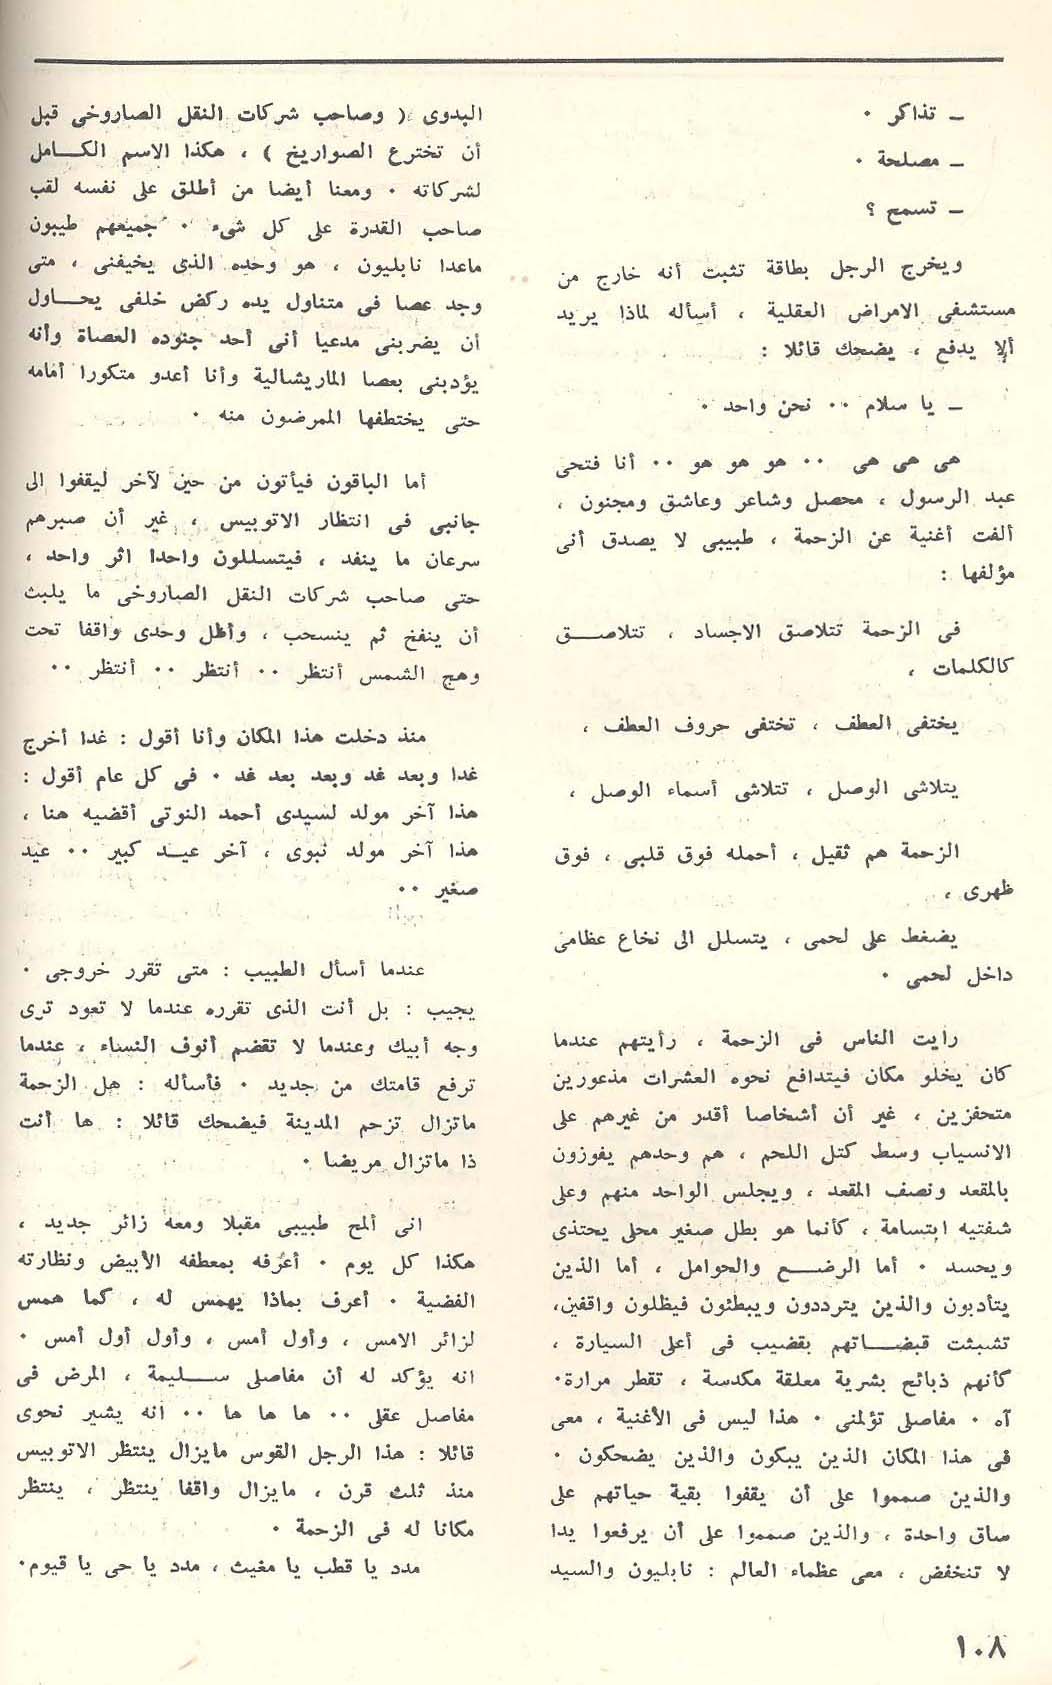 ـ تذاكر ٠
ـ مصلحة ٠
ـ تسمع ؟
ويخرج الرجل بطاقة تثبت أنه خارج من
مستشفى الامراض العقلية ، أسأله لماذا يريد
ألا يدفع ، يضحك قائلا :
ـ يا سلام ٠٠ نحن واحد ٠
هى هى هى ٠٠ هو هو هو ٠٠ أنا فتحى
عبد الرسول ، محصل وشاعر وعاشق ومجنون ،
ألفت أغنية عن الزحمة ، طبيبى لا يصدق أنى
مؤلفها :
فى الزحمة تتلاصق الاجساد ، تتلاصــق
كالكلمات ،
يختفى العطف ، تختفى حروف العطف ،
يتلاشى الوصل ، تتلاشى أسماء الوصل ،
الزحمة هم ثقيل ، أحمله فوق قلبى ، فوق
ظهرى ،
يضغط على لحمى ، يتسلل الى نخاع عظامى
داخل لحمى ٠
رايت الناس فى الزحمة ، رأيتهم عندما
كان يخلو مكان فيتدافع نحوه العشرات مذعورين
متحفزين ، غير أن أشخاصا أقدر من غيرهم على
الانسياب وسط كتل اللحم ، هم وحدهم يفوزون
بالمقعد ونصف المقعد ، ويجلس الواحد منهم وعلى
شفتيه ابتسامة ، كأنما هو بطل صغير محلى يحتذى
ويحسد ٠ أما الرضــع والحوامل ، أما الذين
يتأدبون والذين يترددون ويبطئون فيظلون واقفين،
تشبثت قبضــاتهم بقضيب فى أعلى السيارة ،
كأنهم ذبائح بشرية معلقة مكدسة ، تقطر مرارة٠
آه ٠ مفاصلى تؤلمنى ٠ هذا ليس فى الأغنية ، معى
فى هذا المكان الذين يبكون والذين يضحكون ٠
والذين صمموا على أن يقفوا بقية حياتهم على
ساق واحدة ، والذين صمموا على أن يرفعوا يدا
لا تنخفض ، معى عظماء العالم : نابليون والسيد
البدوى ( وصاحب شركات النقل الصاروخى قبل
أن تخترع الصواريخ ) ، هكذا الاسم الكــامل
لشركاته ٠ ومعنا أيضا من أطلق على نفسه لقب
صاحب القدرة على كل شىء ٠ جميعهم طيبون
ماعدا نابليون ، هو وحده الذى يخيفنى ، متى
وجد عصا فى متناول يده ركض خلفى يحــاول
أن يضربنى مدعيا أنى أحد جنوده العصاة وأنه
يؤدبنى بعصا الماريشالية وأنا أعدو متكورا أمامه
حتى يختطفها الممرضون منه ٠
أما الباقون فيأتون من حين لآخر ليقفوا الى
جانبى فى انتظار الاتوبيس ، غير أن صبرهم
سرعان ما ينفد ، فيتسللون واحدا اثر واحد ،
حتى صاحب شركات النقل الصاروخى ما يلبث
أن ينفخ ثم ينسحب ، وأظل وحدى واقفا تحت
وهج الشمس أنتظر ٠٠ أنتظر ٠٠ أنتظر ٠٠
منذ دخلت هذا المكان وأنا أقول : غدا أخرج
غدا وبعد غد وبعد بعد غد ٠ فى كل عام أقول :
هذا آخر مولد لسيدى أحمد النوتى أقضيه هنا ،
هذا آخر مولد نبوى ، آخر عيــد كبير ٠٠ عيد
صغير ٠٠
عندما أسأل الطبيب : متى تقرر خروجى ٠
يجيب : بل أنت الذى تقرره عندما لا تعود ترى
وجه أبيك وعندما لا تقضم أنوف النساء ، عندما
ترفع قامتك من جديد ٠ فأسأله : هل الزحمة
ماتزال تزحم المدينة فيضحك قائلا : ها أنت
ذا ماتزال مريضا ٠
انى ألمح طبيبى مقبلا ومعه زائر جديد ،
هكذا كل يوم ٠ أعرفه بمعطفه الأبيض ونظارته
الفضية ٠ أعرف بماذا يهمس له ، كما همس
لزائر الامس ، وأول أمس ، وأول أول أمس ٠
انه يؤكد له أن مفاصلى ســليمة ، المرض فى
مفاصل عقلى ٠٠ ها ها ها ٠٠ انه يشير نحوى
قائلا : هذا الرجل القوس مايزال ينتظر الاتوبيس
منذ ثلث قرن ، مايزال واقفا ينتظر ، ينتظر
مكانا له فى الزحمة ٠
مدد يا قطب يا مغيث ، مدد يا حى يا قيوم٠
١٠٨